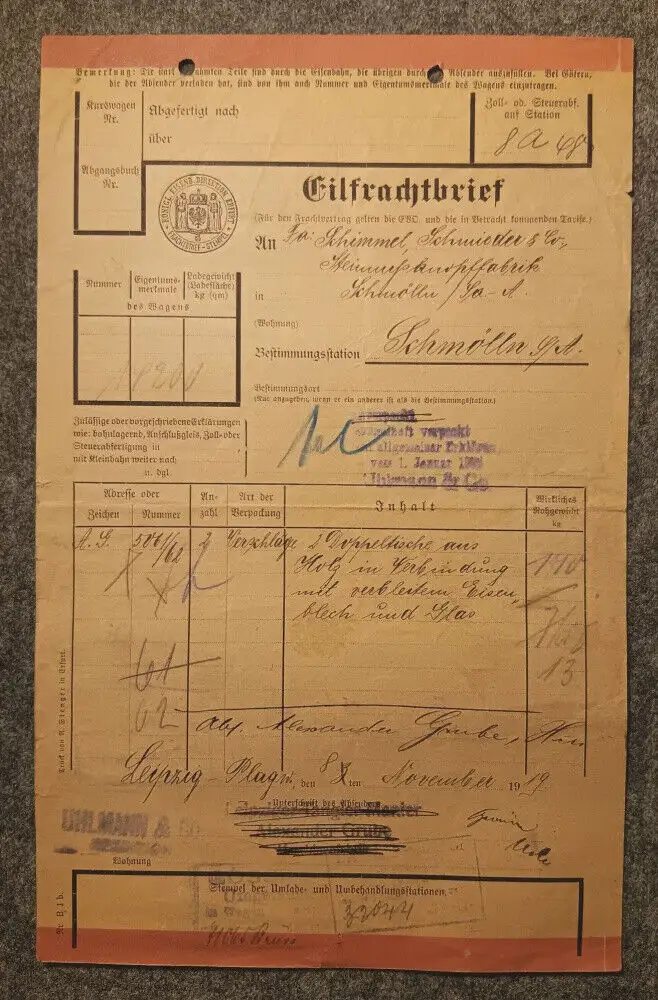 Bemerkung: Die stark umrahmten Teile sind durch die Eisenbahn, die übrigen durch den Absender auszufüllen. Bei Gütern,
die der Absender verladen hat, sind von ihm auch Nummer und Eigentumsmerkmale des Wagens einzutragen.
Kurswagen
Nr.
Abgefertigt nach
über
Zoll- od. Steuerabf.
auf Station
8 A 48
Abgangsbuch
Nr.
KÖNIGL. EISENB. DIREKTION ERFURT
FRACHTBRIEF-STEMPEL
Eilfrachtbrief
(Für den Frachtvertrag gelten die EVO. und die in Betracht kommenden Tarife.)
An Fa: Schimmel Schmieder & Co,
Steinnußknopffabrik
in Schmölln / Sa-A.
(Wohnung)
Bestimmungsstation Schmölln S/A.
Bestimmungsort
(Nur anzugeben, wenn er ein anderes ist als die Bestimmungsstation.)
Nummer
Eigentums-
merkmale
Ladegewicht
(Ladefläche)
kg (qm)
des Wagens
Zulässige oder vorgeschriebene Erklärungen
wie: bahnlagernd, Anschlußgleis, Zoll- oder
Steuerabfertigung in
mit Kleinbahn weiter nach
u. dgl.
verpackt
allgemeiner Erklärung
vom 1. Januar
Uhlmann & Co
Adresse oder
Zeichen
Nummer
An-
zahl
Art der
Verpackung
Inhalt
Wirkliches
Rohgewicht
kg
A. G. 5061/62 2 Verschläge 2 Doppeltische aus
Holz in Verbindung
mit verbleitem Eisen-
blech und Glas
140
13
61
62
Abs. Alexander Grube,
Leipzig-Plagw. den 8 ten November 1919
Unterschrift des Absenders
Alexander Grube
UHLMANN & CO
SPEDITION
Wohnung
Stempel der Umlade- und Umbehandlungsstationen.
32044
Druck von A. Stenger in Erfurt.
Nr. B 1 b.